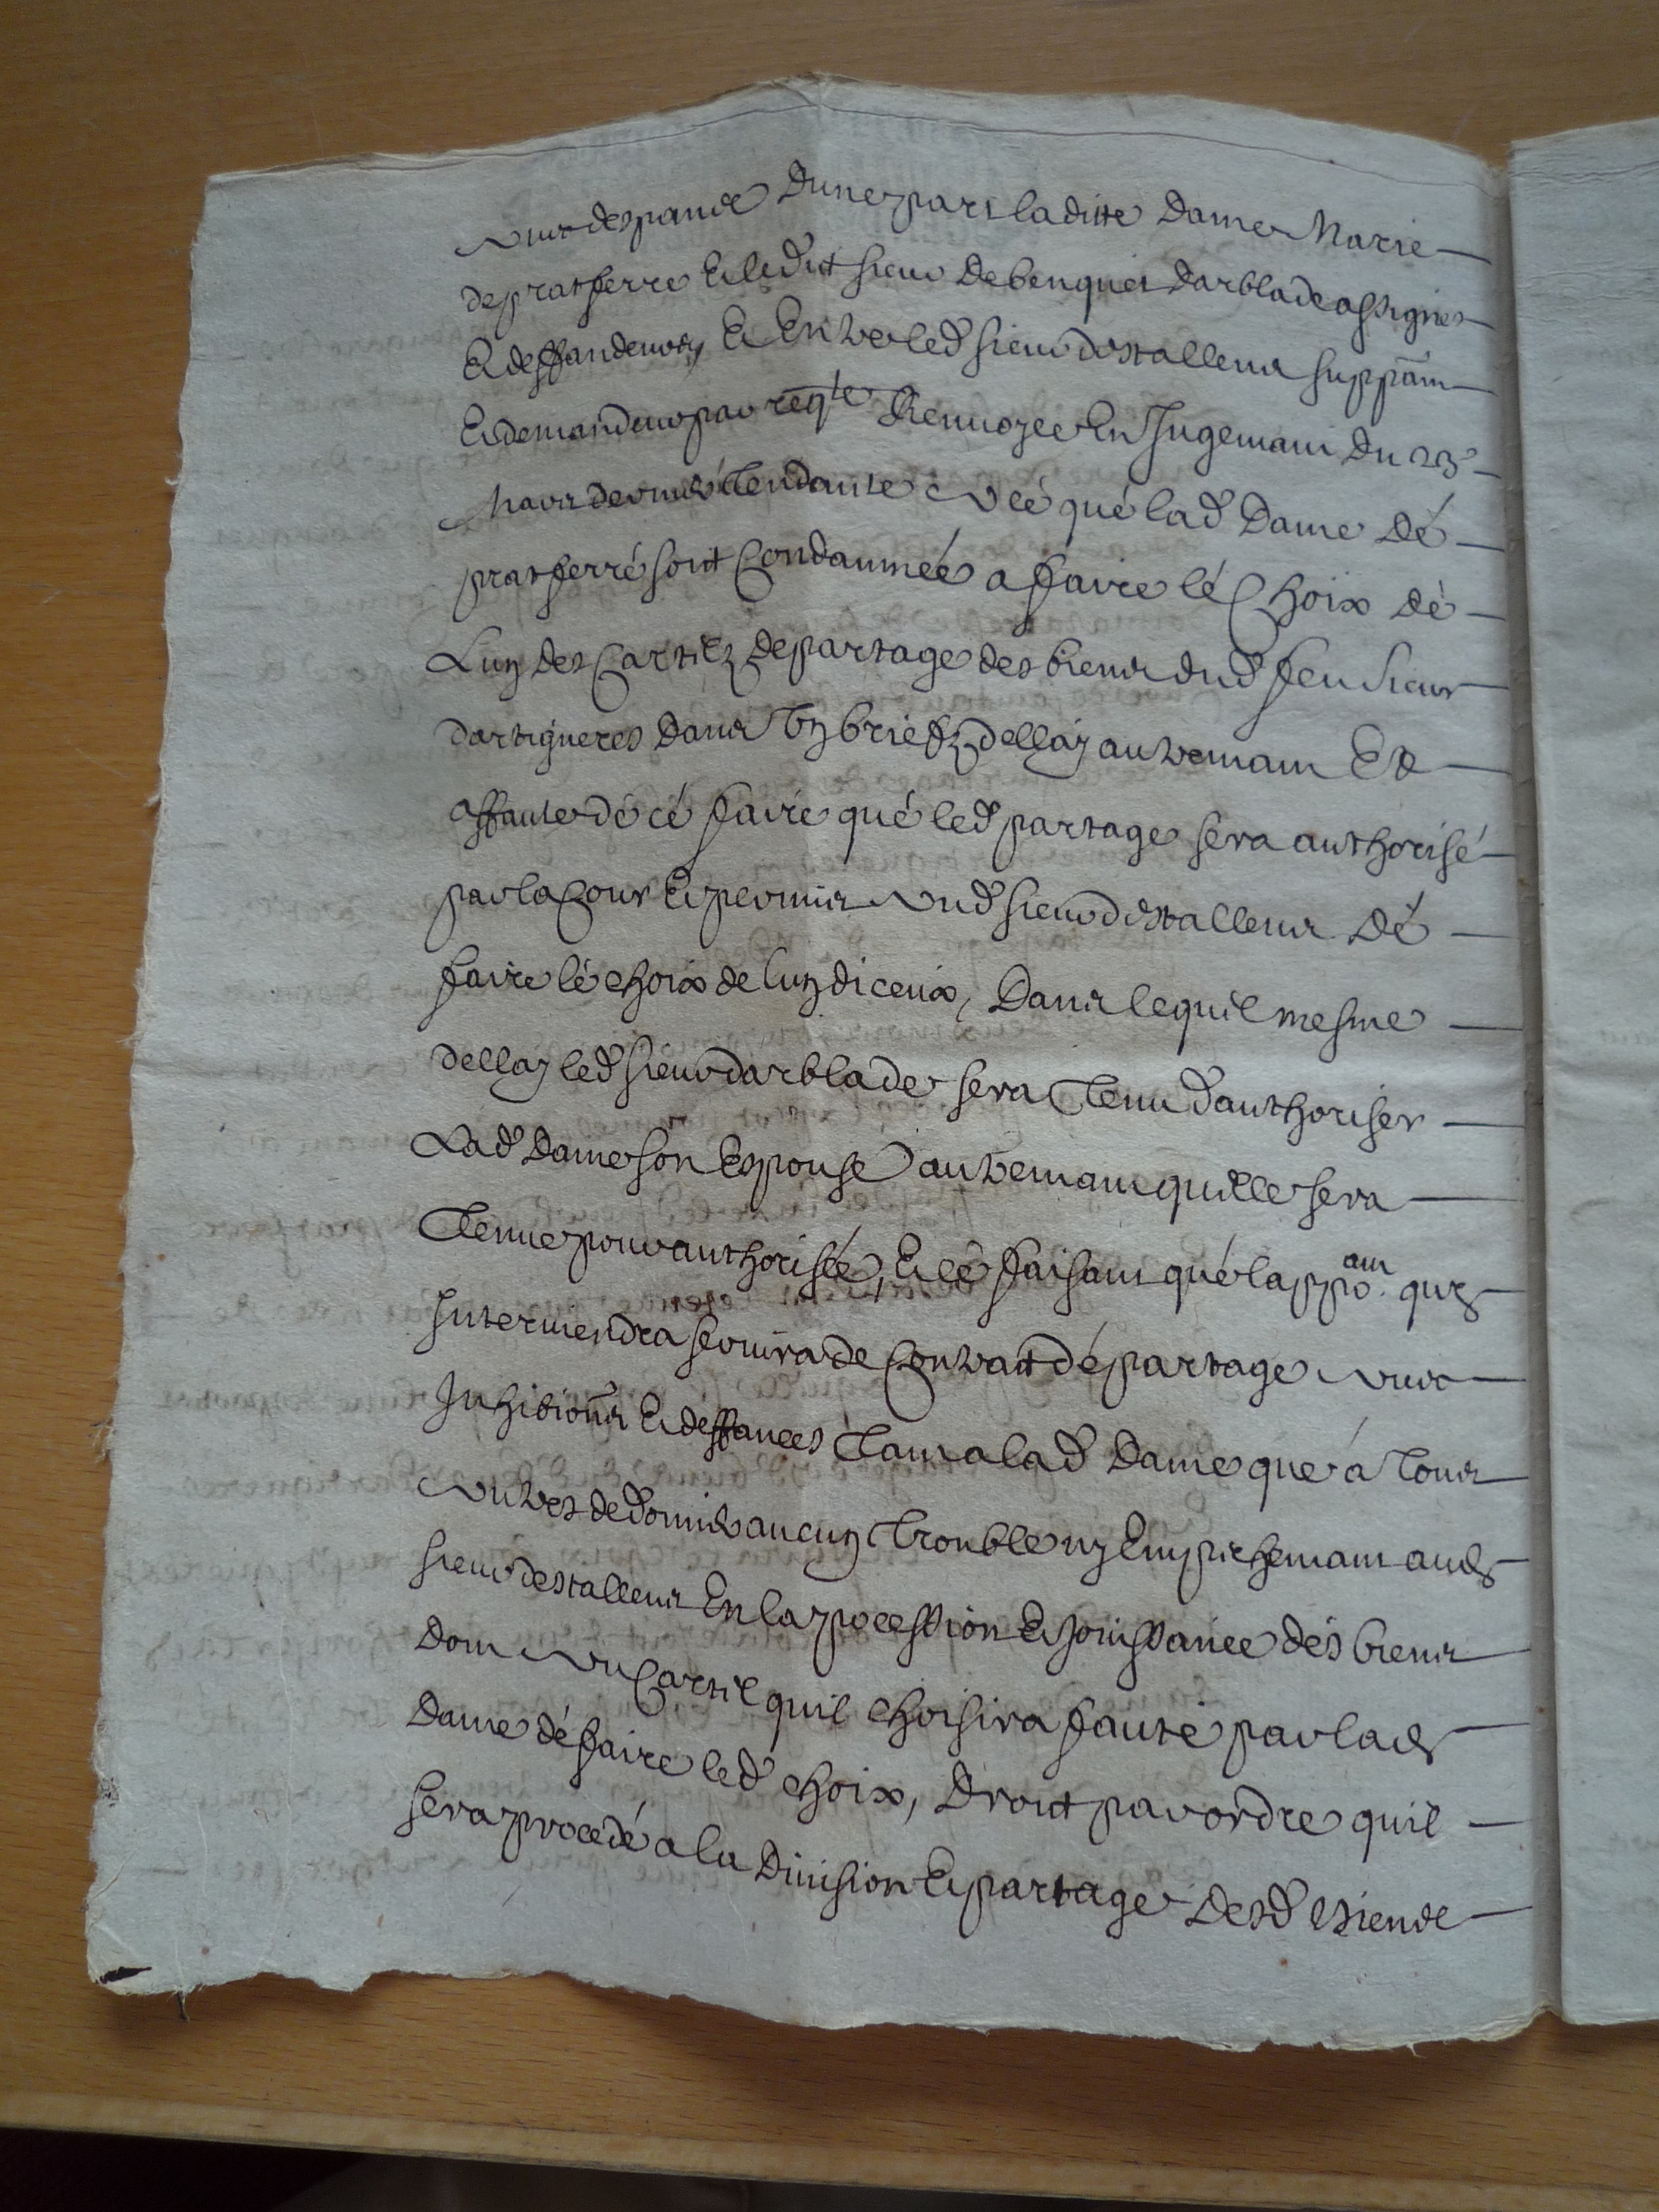 avec despance Dune part laditte Dame Marie
depratferre Et ledit sieur Debenquet darblade assignes
Et deffandeurs, Et Entre led sieur destallens suppant
Et demandeur par reqte Renvoyee En Jugemant du 23e
mars dernier Tendante a cé qué lad Dame dé
pratferré soit Condamnéé a faire lé Choix dé
Lun des Cartilz de partage des biens dud feu Sieur
dartigueres dans Un briefz dellay autremant Et
affaute dé cé fairé qué led partage sera authorisé
par la Cour Et permis aud sieur destallens dé
faire lé choix de lun diceux, Dans lequel mesme
dellay led sieur darblade sera Tenu dauthoriser
Lad Dame son Espouse autremant quelle sera
Tenue pour authorisée, Et cé faisant qué lappoant quy
Interviendra servira de Contrat dé partage avec
Inhibions Et deffances Tant a lad Dame qué a Tous
autres dedonner aucun Trouble ny Empechemant aud
sieur destallens En la pocession Et Jouissance dés biens
Dont au Cartil quil choisira fauté par lad
Dame dé faire led choix, Droit par ordre quil
sera procédé a la Division Et partage desd